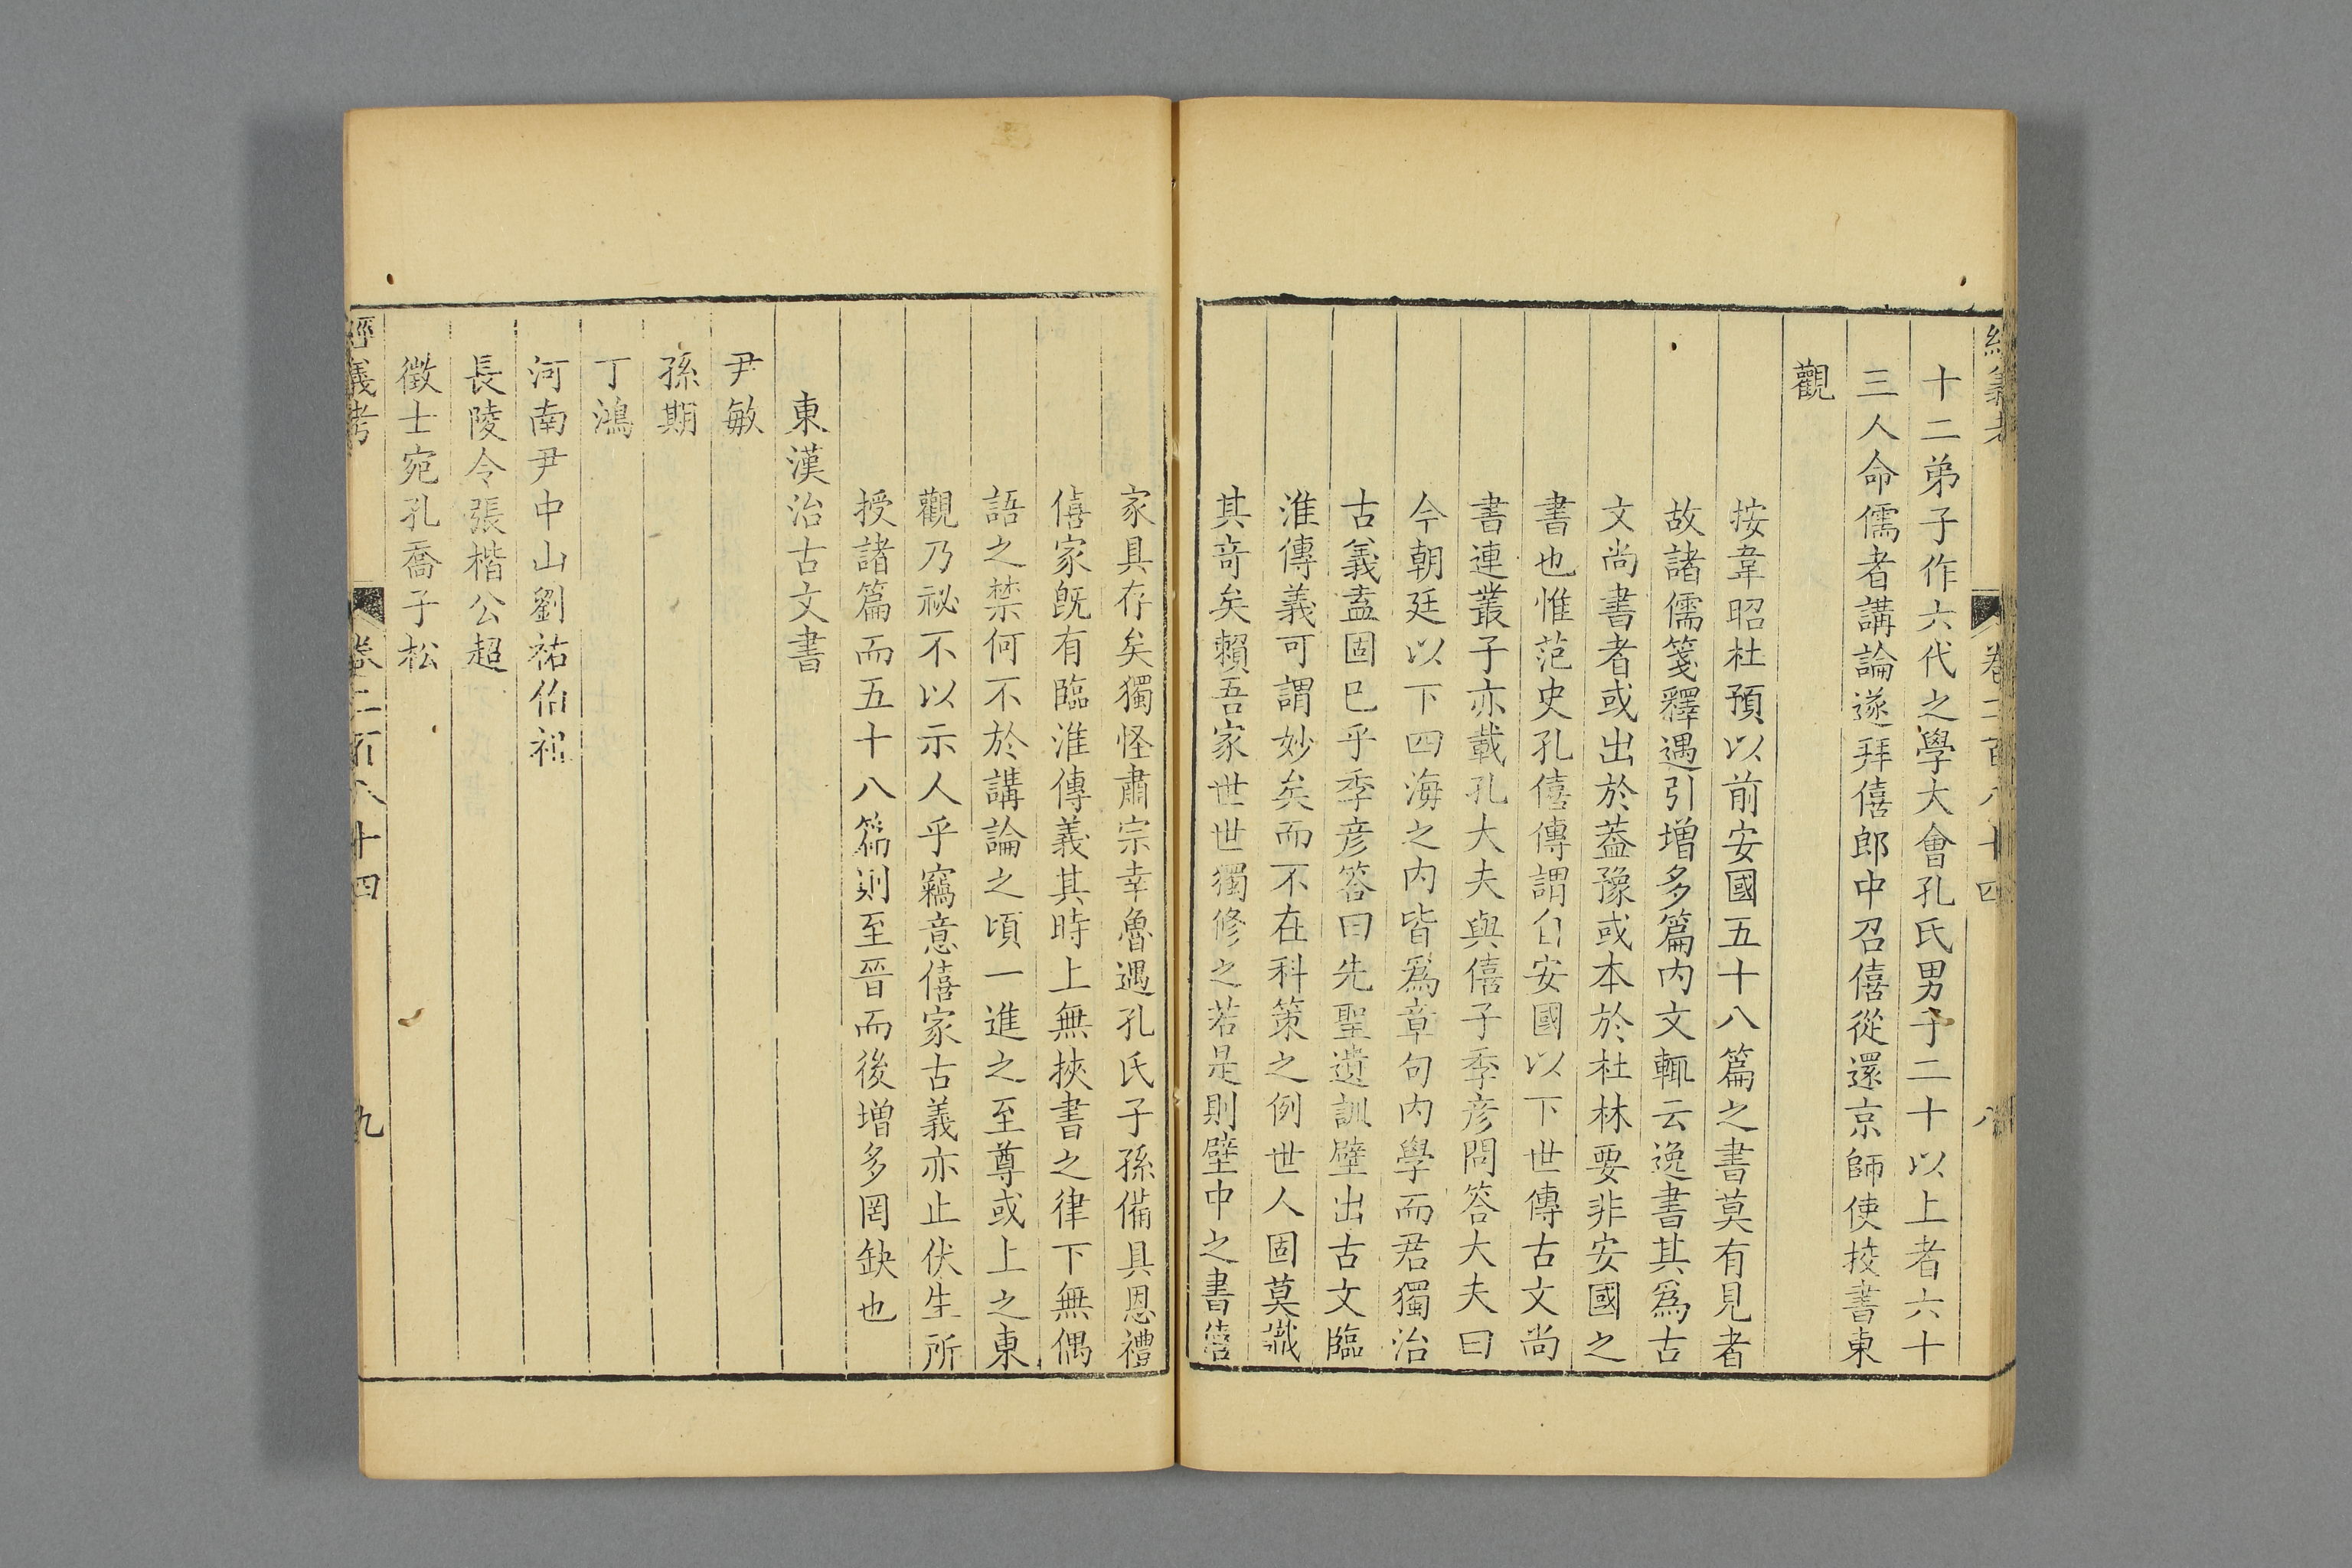 經義考　卷二百八十四　八
十二弟子作六代之學大會孔氏男子二十以上者六十
三人命儒者講論遂拜僖郎中召僖從還京師使挍書東
觀
按韋昭杜預以前安國五十八篇之書莫有見者
故諸儒箋釋遇引增多篇内文輒云逸書其爲古
文尚書者或出於蓋豫或本於杜林要非安國之
書也惟范史孔僖傳謂自安國以下世傳古文尚
書連叢子亦載孔大夫與僖子季彦問答大夫曰
今朝廷以下四海之内皆爲章句内學而君獨治
古義盍固已乎季彦答曰先聖遺訓壁出古文臨
淮傳義可謂妙矣而不在科策之例世人固莫識
其竒矣賴吾家世世獨修之若是則壁中之書僖
家具存矣獨怪肅宗幸魯遇孔氏子孫備具恩禮
僖家旣有臨淮傳義其時上無挾書之律下無偶
語之禁何不於講論之頃一進之至尊或上之東
觀乃祕不以示人乎竊意僖家古義亦止伏生所
授諸篇而五十八篇則至晉而後增多罔缺也
東漢治古文書
尹敏
孫期
丁鴻
河南尹中山劉祐伯祖
長陵令張楷公超
徵士宛孔喬子松
經義考　卷二百八十四　九